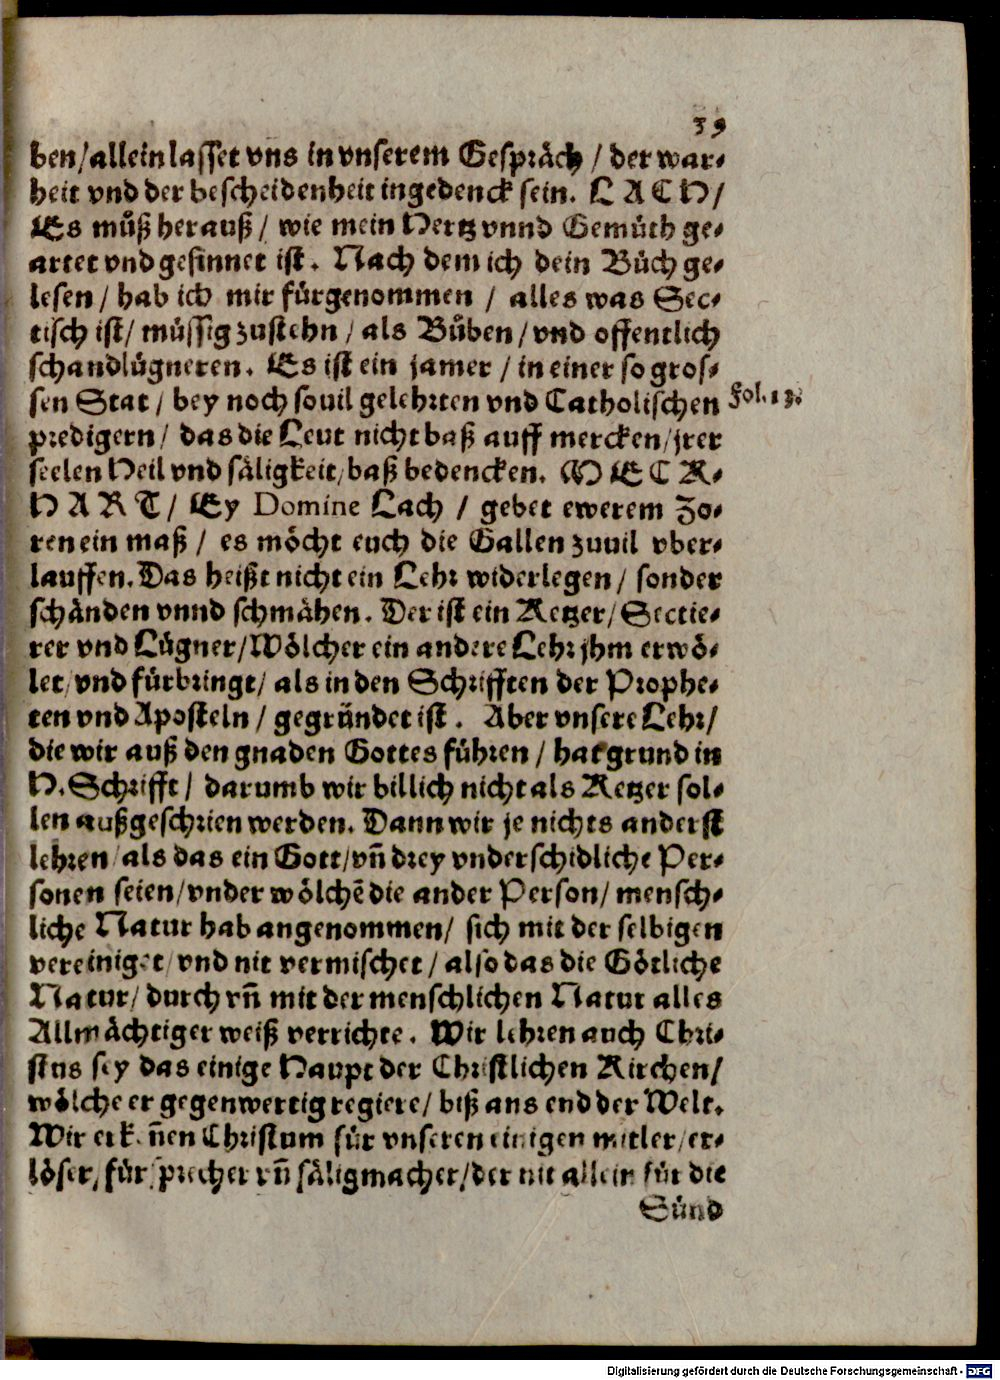 39
ben/ allein lasset vns in vnserem Gespräch / der war-
heit vnd der bescheidenheit ingedenck sein. LACH/
Es můß herauß / wie mein Hertz vnnd Gemüth ge-
artet vnd gesinnet ist. Nach dem ich dein Bůch ge-
lesen / hab ich mir fürgenommen / alles was Sec-
tisch ist/ müssig zustehn / als Bůben / vnd offentlich
schandlügneren. Es ist ein jamer / in einer so gros-
sen Stat / bey noch souil gelehrten vnd Catholischen
Fol. 13.
predigern / das die Leut nicht baß auff mercken/ jrer
seelen Heil vnd säligkeit/ baß bedencken. MECK-
HART/ Ey Domine Lach / gebet ewerem Zo-
ren ein maß / es möcht euch die Gallen zuuil vber-
lauffen. Das heißt nicht ein Lehr widerlegen / sonder
schänden vnnd schmähen. Der ist ein Ketzer/ Sectie-
rer vnd Lügner/ Wölcher ein andere Lehr jhm erwö-
let/ vnd fürbringt/ als in den Schrifften der Prophe-
ten vnd Aposteln / gegründet ist. Aber vnsere Lehr/
die wir auß den gnaden Gottes führen / hat grund in
H. Schrifft / darumb wir billich nicht als Ketzer sol-
len außgeschrien werden. Dann wir je nichts anderst
lehren / als das ein Gott/ vñ drey vnderschidliche Per-
sonen seien/ vnder wölchẽ die ander Person/ mensch-
liche Natur hab angenommen/ sich mit der selbigen
vereiniget/ vnd nit vermischet / also das die Götliche
Natur/ durch vñ mit der menschlichen Natur alles
Allmächtiger weiß verrichte. Wir lehren auch Chri-
stus sey das einige Haupt der Christlichen Kirchen/
wölche er gegenwertig regiere/ biß ans end der Welt.
Wir erkeñen Christum für vnseren einigen mitler/ er-
löser/ fürsprecher vñ säligmacher/ der nit allein für die
Sünd
Digitalisierung gefördert durch die Deutsche Forschungsgemeinschaft - DFG